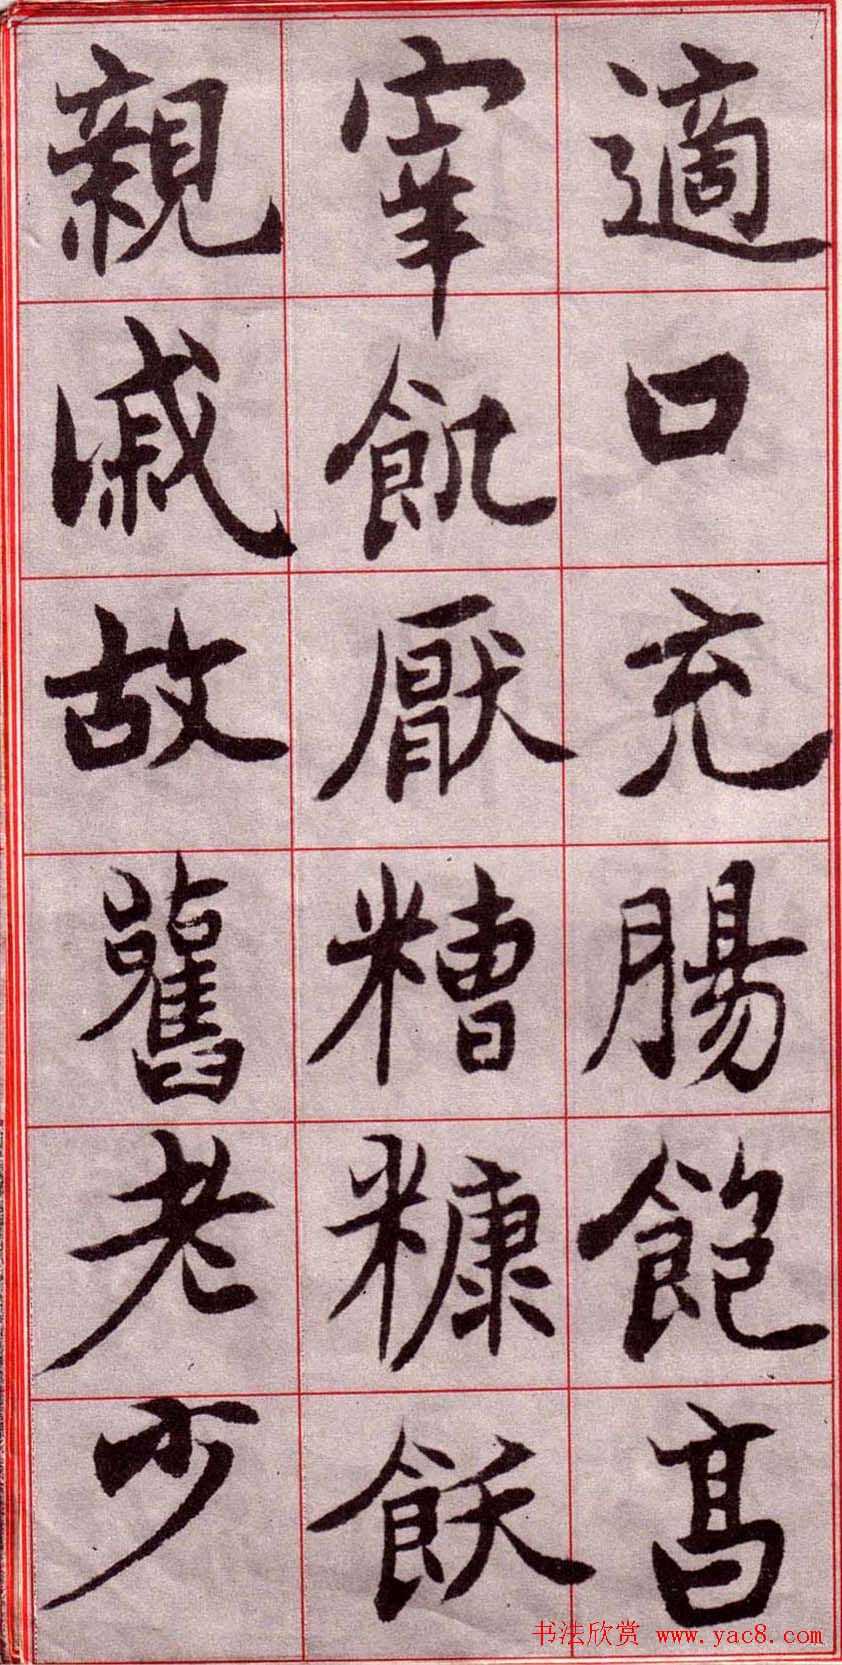 適口充腸飽亯
宰飢厭糟糠飫
親戚故舊老少
书法欣赏 www.yac8.com